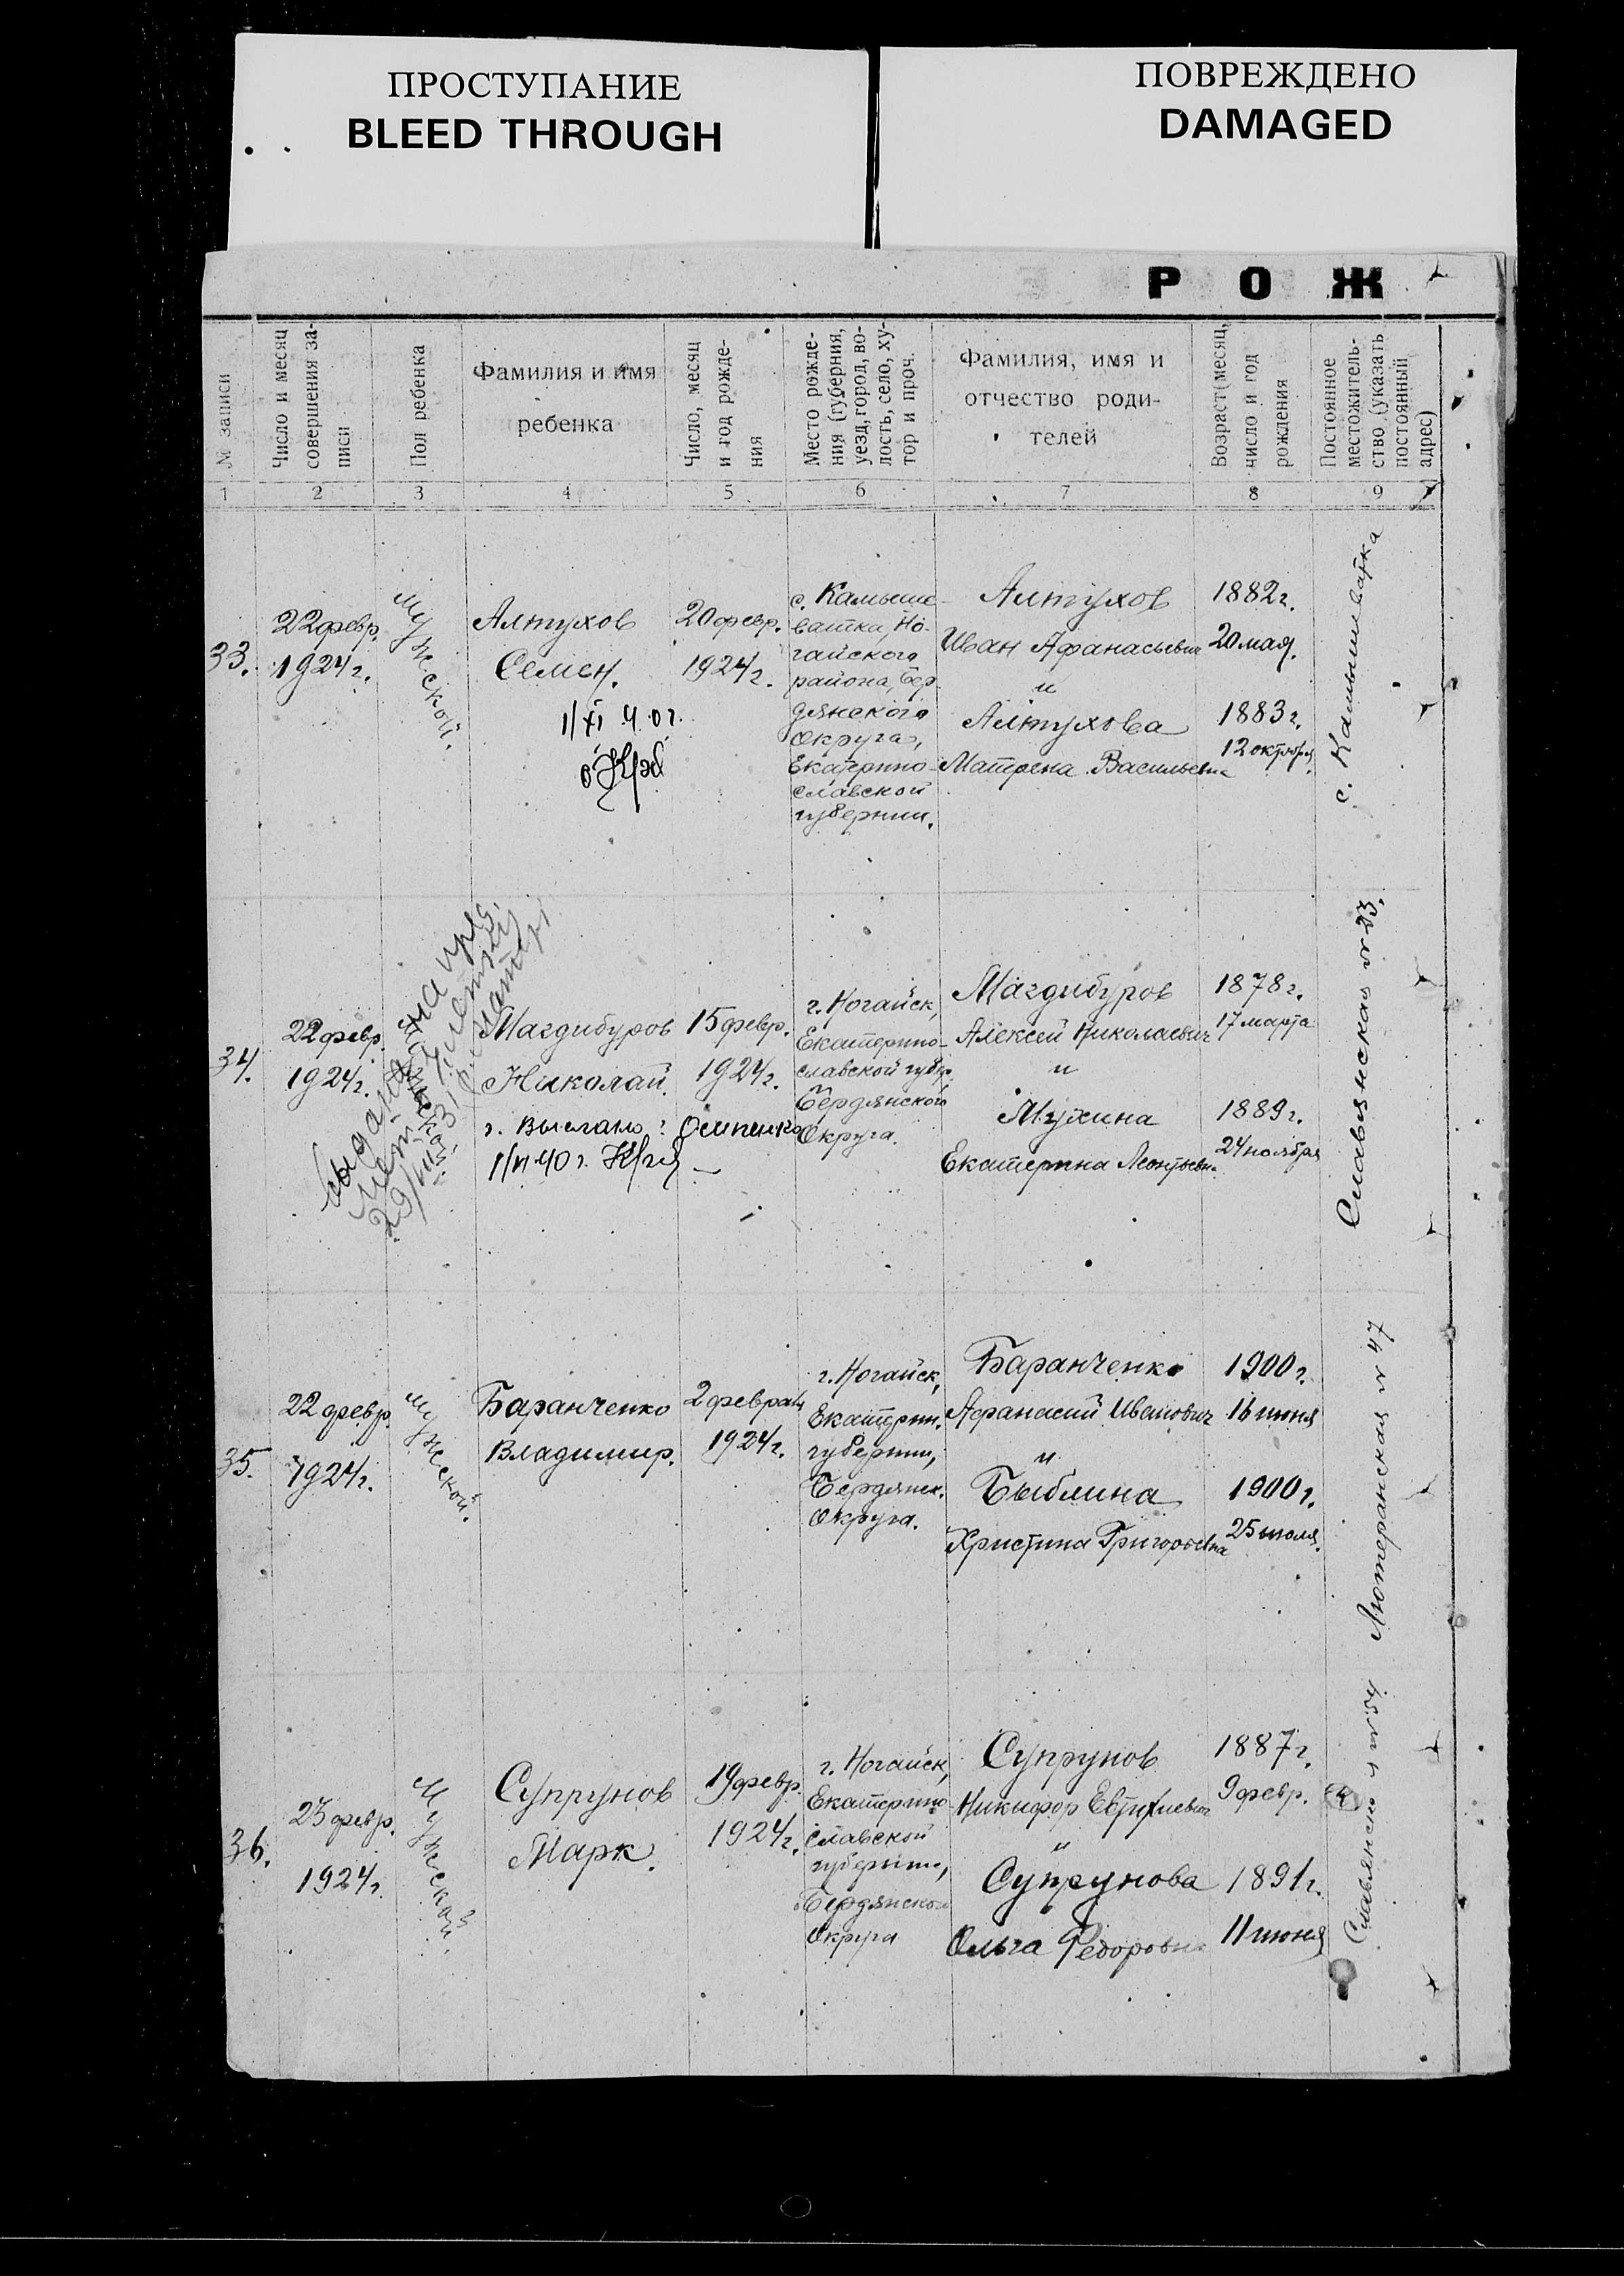 ПРОСТУПАНИЕ
BLEED THROUGH
ПОВРЕЖДЕНО
DAMAGED
Р О Ж
№ записи
Число и месяц
совершения за-
писи
Пол ребенка
Фамилия и имя
ребенка
Число, месяц
и год рожде-
ния
Место рожде-
ния (губерния,
уезд, город, во-
лость, село, ху-
тор и проч.
Фамилия, имя и
отчество роди-
телей
Возраст (месяц,
число и год
рождения
Постоянное
местожитель-
ство (указать
постоянный
адрес)
1 2 3 4 5 6 7 8 9
33.
22 февр.
1924 г.
Мужской.
Алтухов
Семен.
1/XI 40 г.
20 февр.
1924 г.
с. Камыше-
ватка, Но-
гайского
района, Бер
дянского
округа,
Екатерино-
славской
губернии.
Алтухов
Иван Афанасьевич
и
Алтухова
Матрена Васильевна
1882 г.
20 мая.
1883 г.
12 октября.
с. Камышеватка
34.
22 февр.
1924 г.
Мужской
29/III 31
Магдибуров
Николай.
1/VI 40 г.
15 февр.
1924 г.
г. Ногайск,
Екатерино-
славской губер.
Бердянского
Округа.
Магдибуров
Алексей Николаевич
и
Мухина
Екатерина Леонтьевна.
1878 г.
17 марта
1889 г.
24 ноября
Славянская № 23.
35.
22 февр.
1924 г.
Мужской.
Баранченко
Владимир.
2 февраля
1924 г.
г. Ногайск,
Екатерин.
губернии,
Бердянск.
Округа.
Баранченко
Афанасий Иванович
и
Быблина
Христина Григорьевна
1900 г.
16 июня
1900 г.
25 июля.
Лютеранская № 47
36.
23 февр.
1924 г.
Мужской.
Супрунов
Марк.
19 февр.
1924 г.
г. Ногайск,
Екатерино
славской
губернии,
Бердянского
Округа
Супрунов
Никифор Евтихиевич
и
Супрунова
Ольга Федоровна
1887 г.
9 февр.
1891 г.
11 июня
№ 54